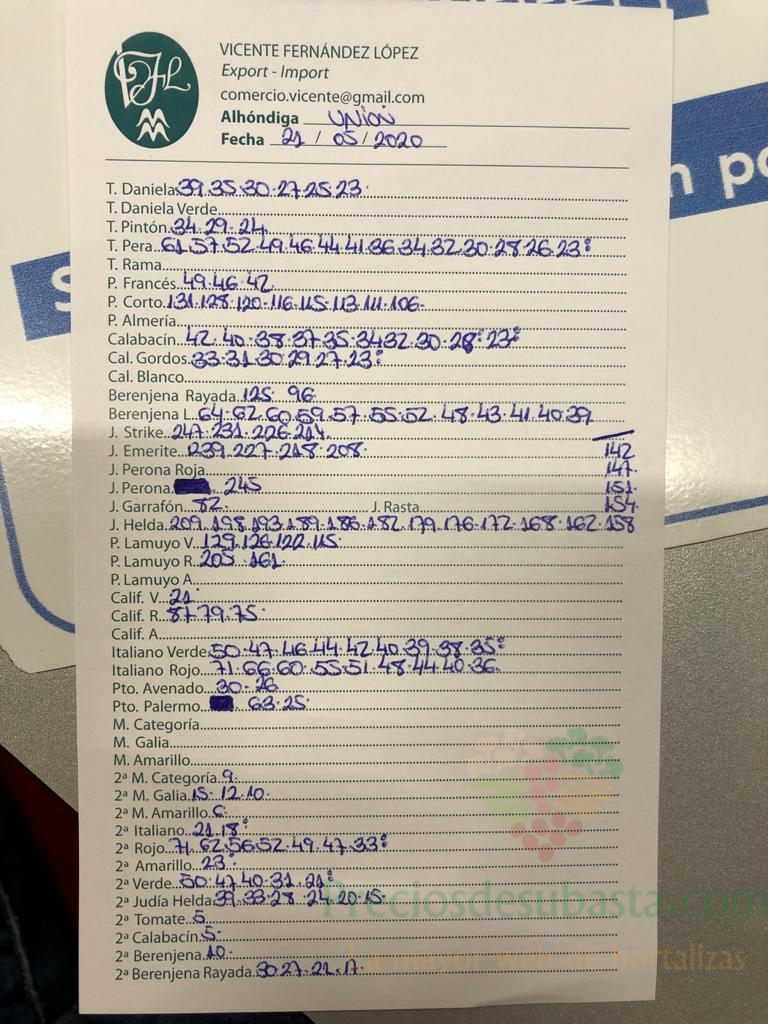 VICENTE FERNÁNDEZ LÓPEZ
Export - Import
comercio.vicente@gmail.com
Alhóndiga UNION
Fecha 21 / 05 / 2020
T. Daniela 39.35.30.27.25.23.
T. Daniela Verde
T. Pintón 34.29.24.
T. Pera 61.57.52.49.46.44.41.36.34.32.30.28.26.23:
T. Rama
P. Francés 49.46.42
P. Corto 131.128.120.116.115.113.111.106.
P. Almería
Calabacín 42.40.38.37.35.34.32.30.28:23:
Cal. Gordos 33.31.30.29.27.23:
Cal. Blanco
Berenjena Rayada 125. 96
Berenjena L. 64.62.60.59.57.55.52.48.43.41.40.39
J. Strike 247.231.226.214.
J. Emerite 239.227.218.208. 142
J. Perona Roja 147.
J. Perona 245 151.
J. Garrafón 82. J. Rasta 154.
J. Helda 209.198.193.189.186.182.179.176.172.168.162.158
P. Lamuyo V. 129.126.122.115.
P. Lamuyo R. 205. 161.
P. Lamuyo A.
Calif. V. 21.
Calif. R. 87.79.75.
Calif. A.
Italiano Verde 50.47.46.44.42.40.39.38.35:
Italiano Rojo 71.66.60.55.51.48.44.40.36.
Pto. Avenado 30.26
Pto. Palermo 63.25.
M. Categoría
M. Galia
M. Amarillo
2ª M. Categoría 9.
2ª M. Galia 15.12.10.
2ª M. Amarillo 6.
2ª Italiano 21.18:
2ª Rojo 71.62.56.52.49.47.33:
2ª Amarillo 23.
2ª Verde 50.47.40.31.21:
2ª Judía Helda 39.33.28.24.20.15.
2ª Tomate 5.
2ª Calabacín 5.
2ª Berenjena 10.
2ª Berenjena Rayada 30.27.21.17.
Preciosdesubasta.com
La mayor web de hortalizas